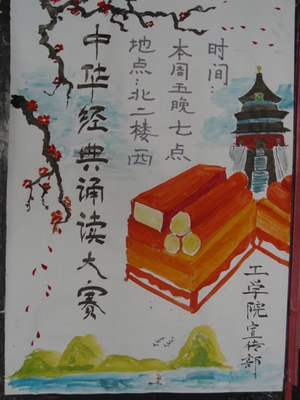 时间：
本周五晚七点
地点：北二楼西
中华经典诵读大赛
工学院宣传部